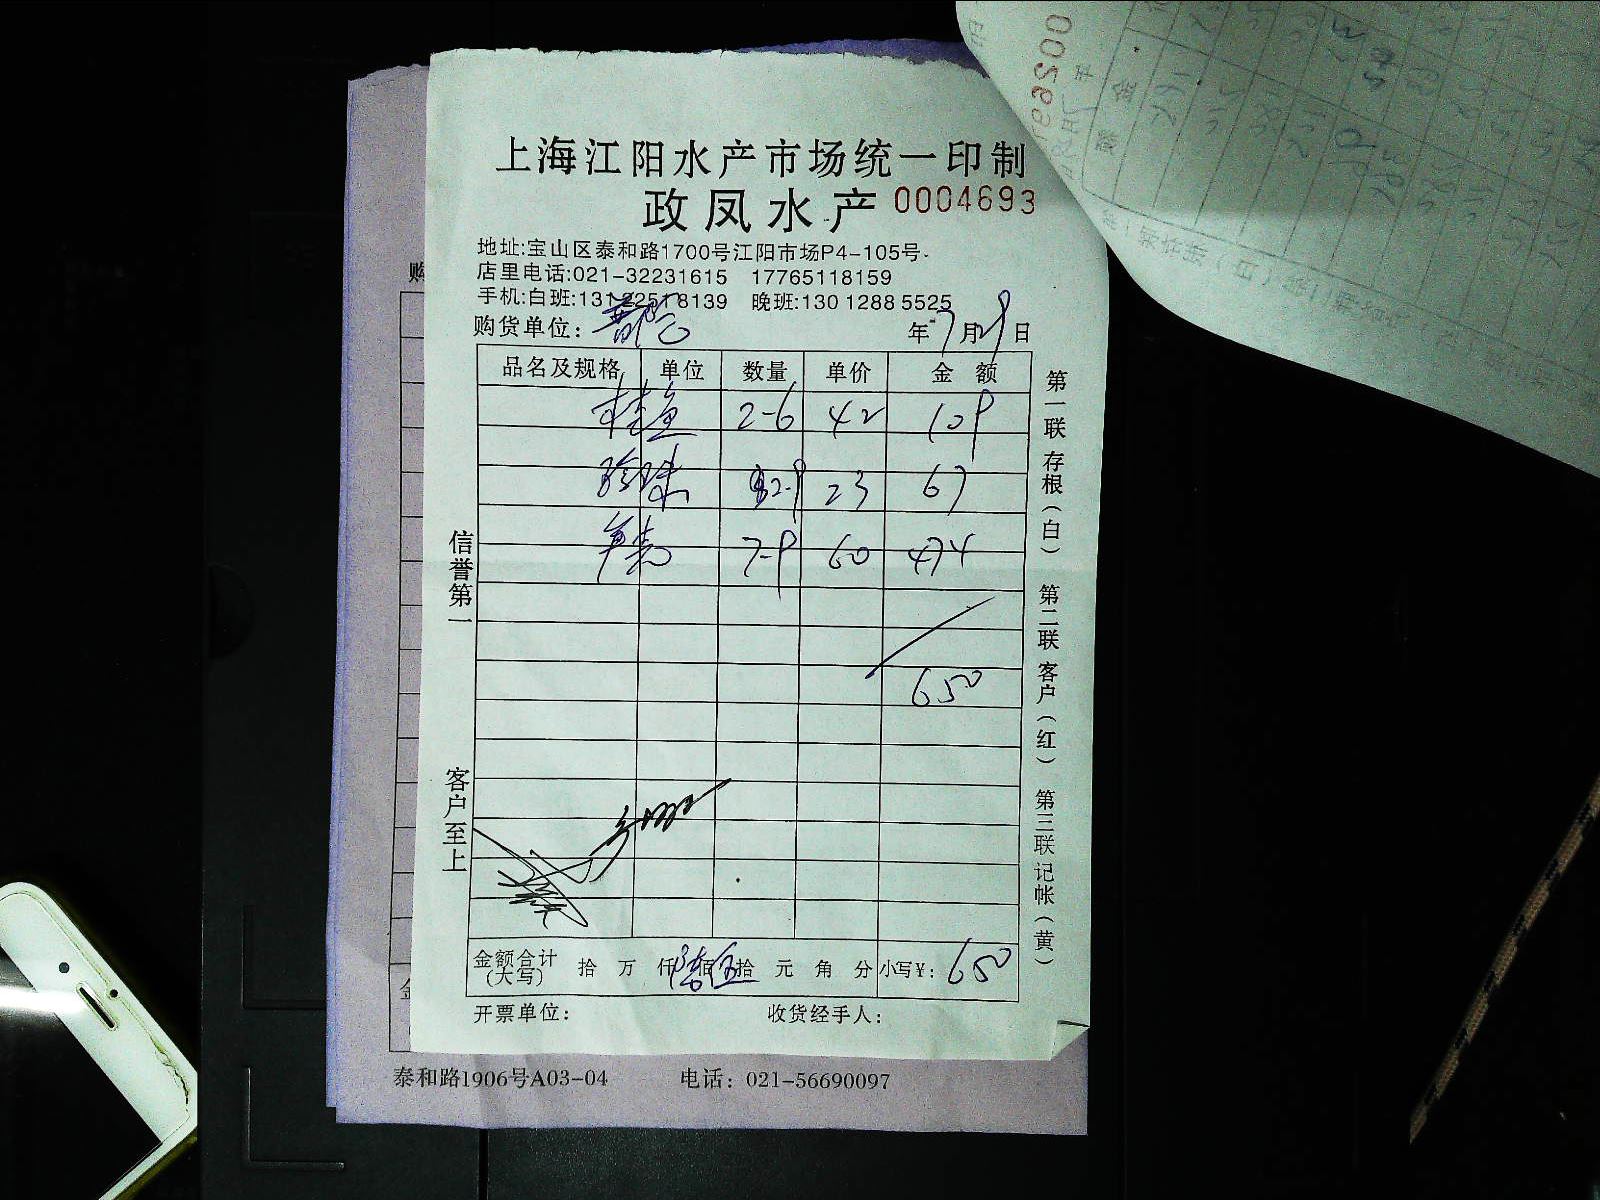 上海江阳水产市场统一印制
政凤水产 0004693
地址:宝山区泰和路1700号江阳市场P4-105号
店里电话:021-32231615 17765118159
手机:白班:13122518139 晚班:130 1288 5525
购货单位:
年7月29日
品名及规格 单位 数量 单价 金额
桂鱼 2-6 42 109
珍珠 2-9 23 67
7-9 60 474
650
金额合计(大写) 拾 万 仟 陆佰 伍拾 元 角 分 小写¥: 650
开票单位: 收货经手人:
信誉第一
客户至上
第一联 存根(白) 第二联 客户(红) 第三联 记帐(黄)
泰和路1906号A03-04 电话：021-56690097